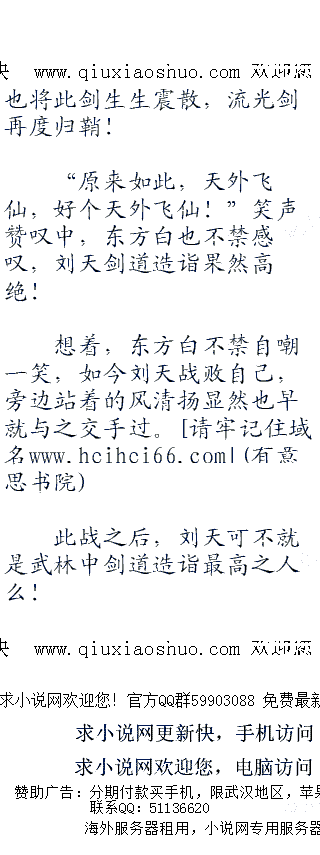 快 www.qiuxiaoshuo.com 欢迎您
也将此剑生生震散，流光剑
再度归鞘！
“原来如此，天外飞
仙，好个天外飞仙！”笑声
赞叹中，东方白也不禁感
叹，刘天剑道造诣果然高
绝！
想着，东方白不禁自嘲
一笑，如今刘天战败自己，
旁边站着的风清扬显然也早
就与之交手过。[请牢记住域
名www.hcihci66.com|(有意
思书院)
此战之后，刘天可不就
是武林中剑道造诣最高之人
么！
快 www.qiuxiaoshuo.com 欢迎您
求小说网欢迎您！官方QQ群59903088 免费最新
求小说网更新快，手机访问
求小说网欢迎您，电脑访问
赞助广告：分期付款买手机，限武汉地区，苹果
联系QQ：51136620
海外服务器租用，小说网专用服务器